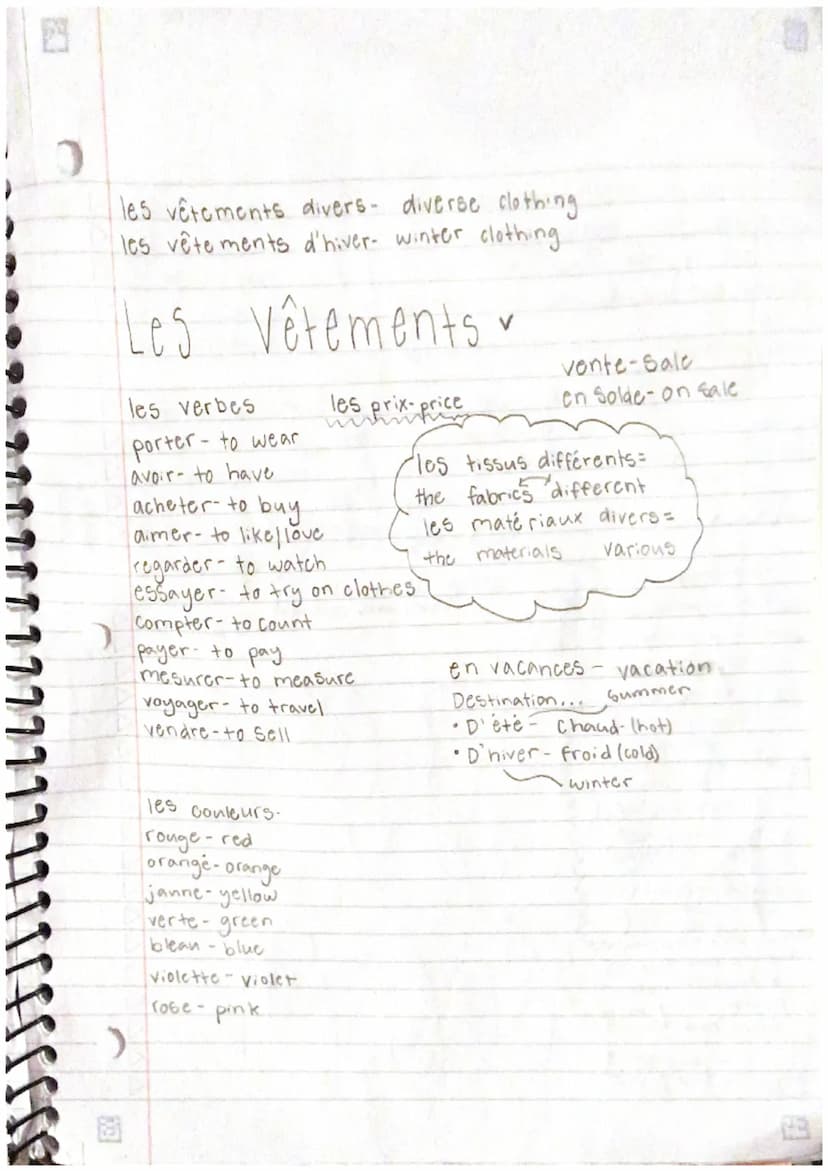 les vêtements divers- diverse clothing
les vêtements d'hiver- winter clothing
Les Vêtements
vente-sale
en solde- on sale
les verbes
les prix-price
porter- to wear
avoir- to have
acheter- to buy
aimer- to like/love
regarder- to watch
essayer- to try on clothes
compter- to count
payer- to pay
mesurer-to measure
voyager- to travel
vendre-to sell
les tissus différents=
the fabrics different
les matériaux divers=
the materials various
en vacances- vacation
Destination... summer
• D'été- chaud-(hot)
• D'hiver- froid (cold)
winter
les couleurs-
rouge-red
orangé-orange
janne-yellow
verte-green
blean-blue
violette-violet
rose-pink